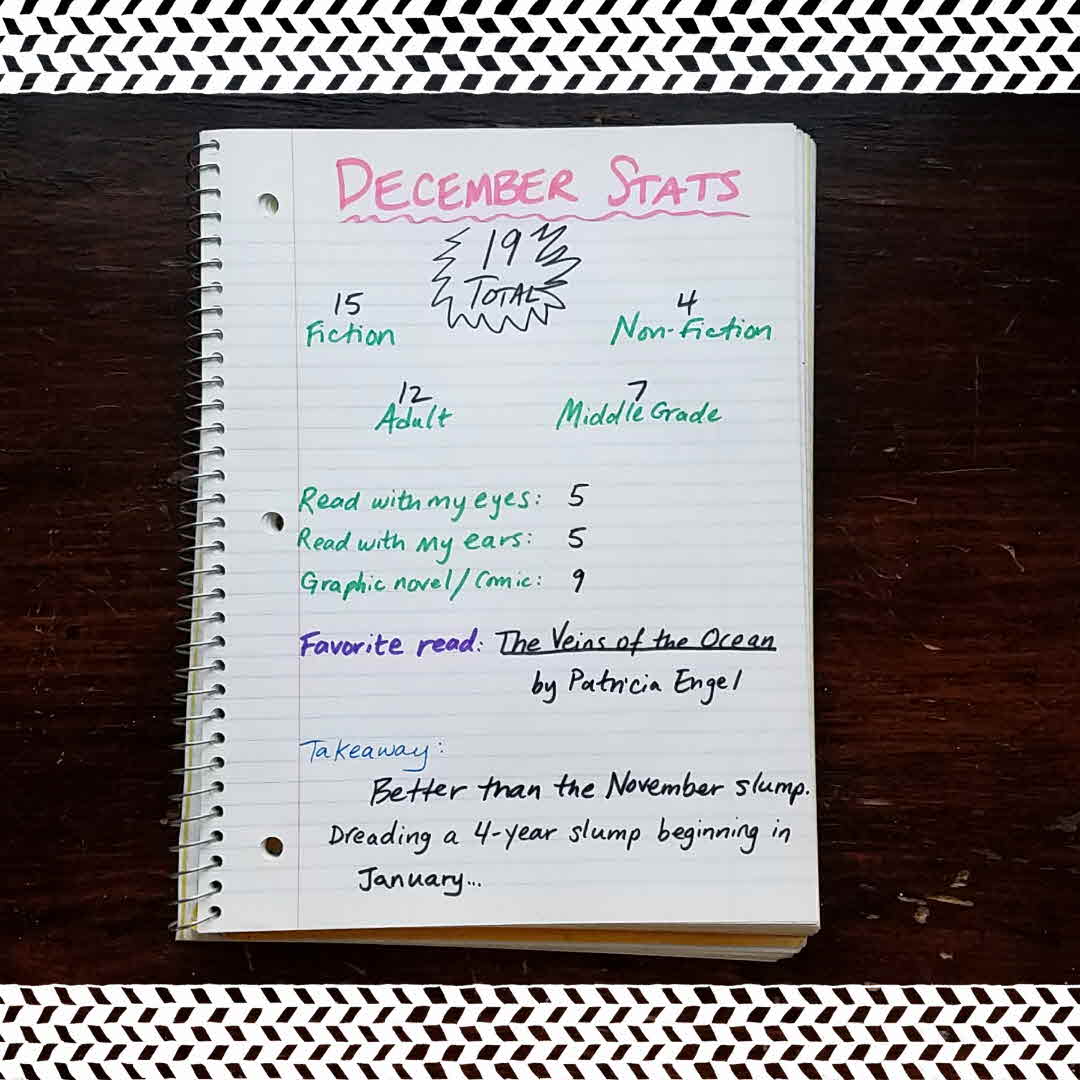 DECEMBER STATS
19
TOTAL
15
Fiction
4
Non-Fiction
12
Adult
7
Middle Grade
Read with my eyes: 5
Read with my ears: 5
Graphic novel/Comic: 9
Favorite read: The Veins of the Ocean
by Patricia Engel
Takeaway:
Better than the November slump.
Dreading a 4-year slump beginning in
January...